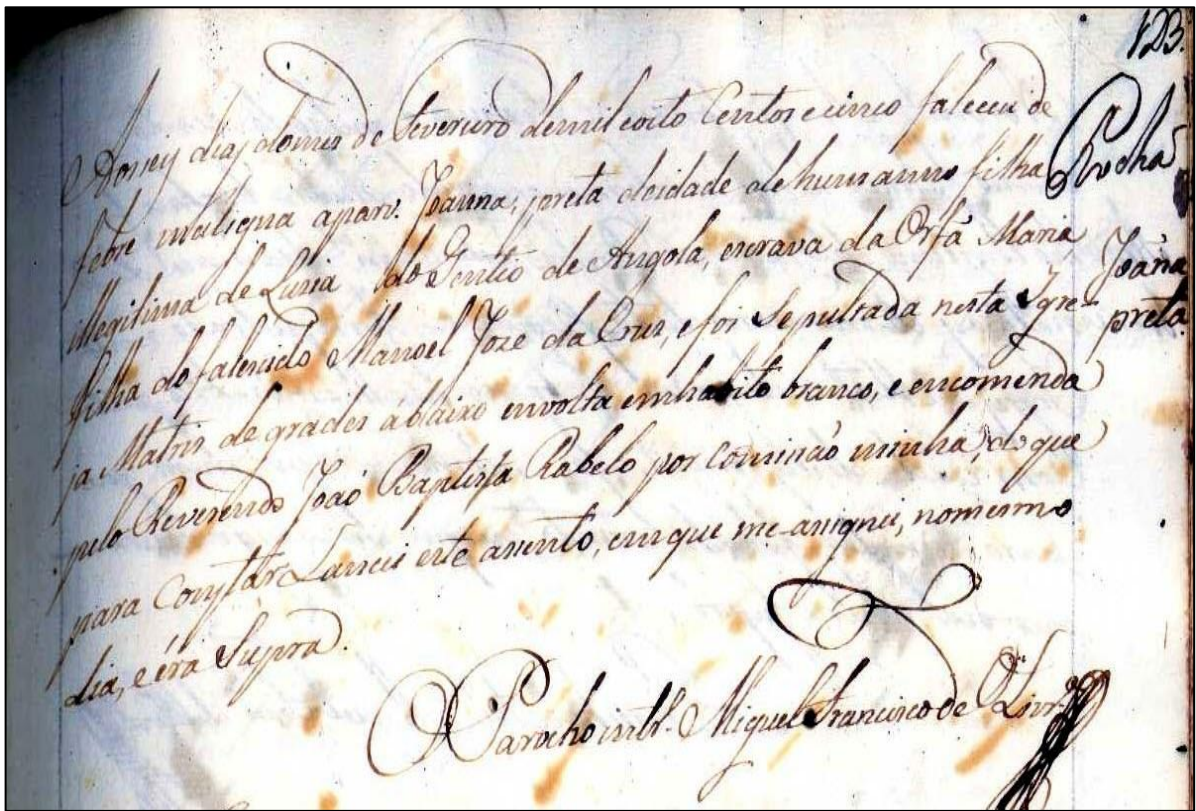 123.
Rocha
Aos seis dias do mes de Fevereiro de mil oito Centos e cinco faleceu de
febre maligna a parv. Joanna, preta de idade de hum anno filha
illegitima de Luzia do Gentio de Angola, escrava da Orfã Maria,
filha do falecido Manoel Joze da Cruz, e foi Sepultada nesta Igre-
ja Matris de grades abaixo envolta em habito branco, e encomenda
pelo Reverendo João Baptista Rabelo por comissão minha, do que
para Constar Lancei este assento, em que me assignei, no mesmo
dia, e éra Supra.
Joãna
preta.
O Parocho intr. Miguel Francisco de